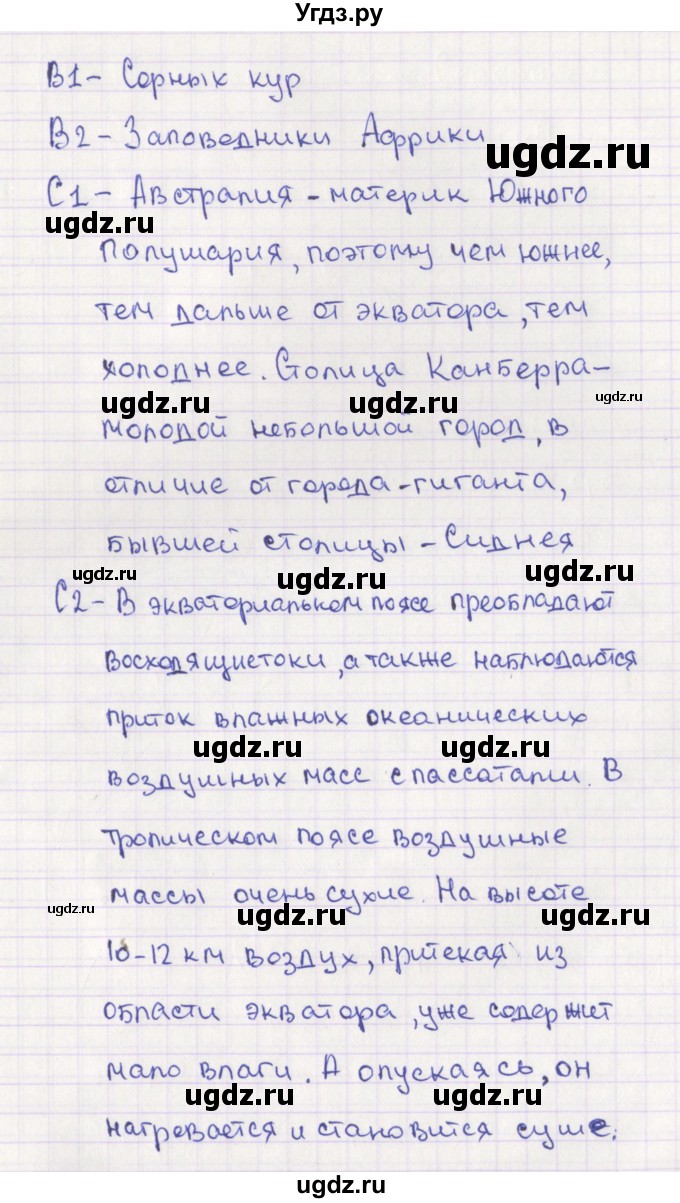 Угдз.ру
B1 - Сорных кур
B2 - Заповедники Африки
ugdz.ru
C1 - Австралия - материк Южного
ugdz.ru
Полушария, поэтому чем южнее,
тем дальше от экватора, тем
холоднее. Столица Канберра -
ugdz.ru ugdz.ru ugdz.ru
молодой небольшой город, в
отличие от города-гиганта,
бывшей столицы - Сиднея
ugdz.ru ugdz.ru ugdz.ru
C2 - В экваториальном поясе преобладают
восходящие токи, а также наблюдаются
приток влажных океанических
ugdz.ru ugdz.ru
воздушных масс с пассатами. В
тропическом поясе воздушные
массы очень сухие. На высоте
ugdz.ru ugdz.ru ugdz.ru
10-12 км воздух, притекая из
области экватора, уже содержит
мало влаги. А опускаясь, он
ugdz.ru ugdz.ru
нагревается и становится суше.
ugdz.ru ugdz.ru